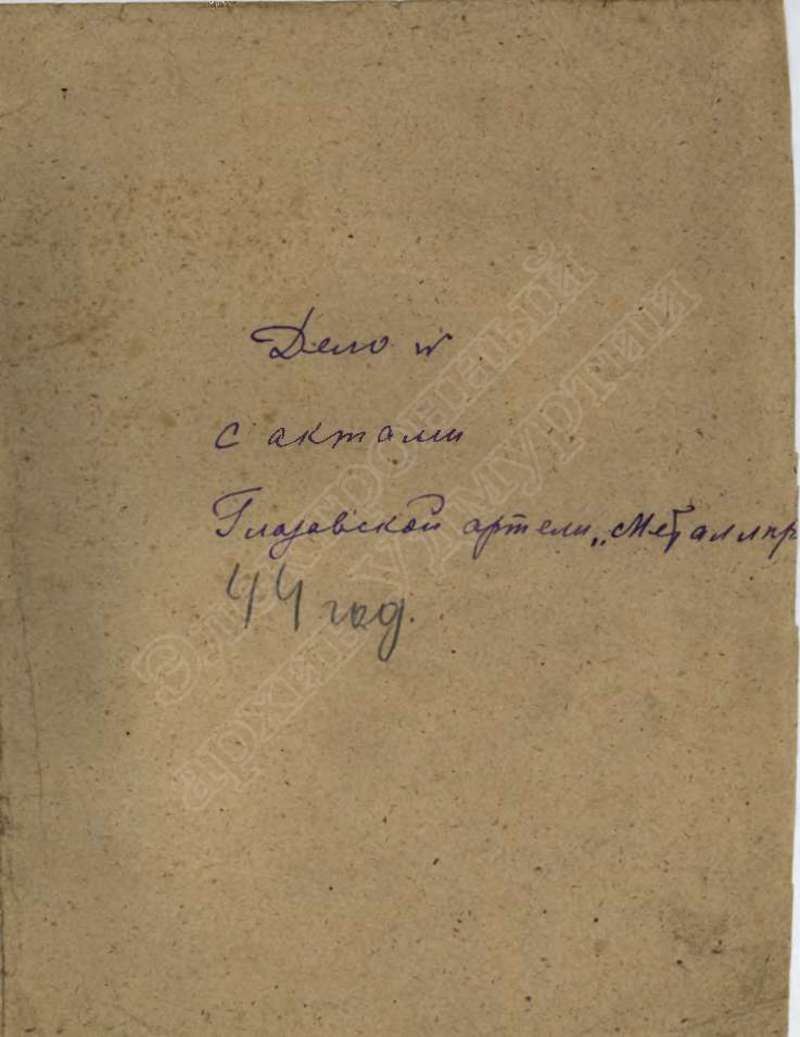 Дело №
с актами
Глазовской артели „Металлпр
44 год.
Электронный
архив Удмуртии